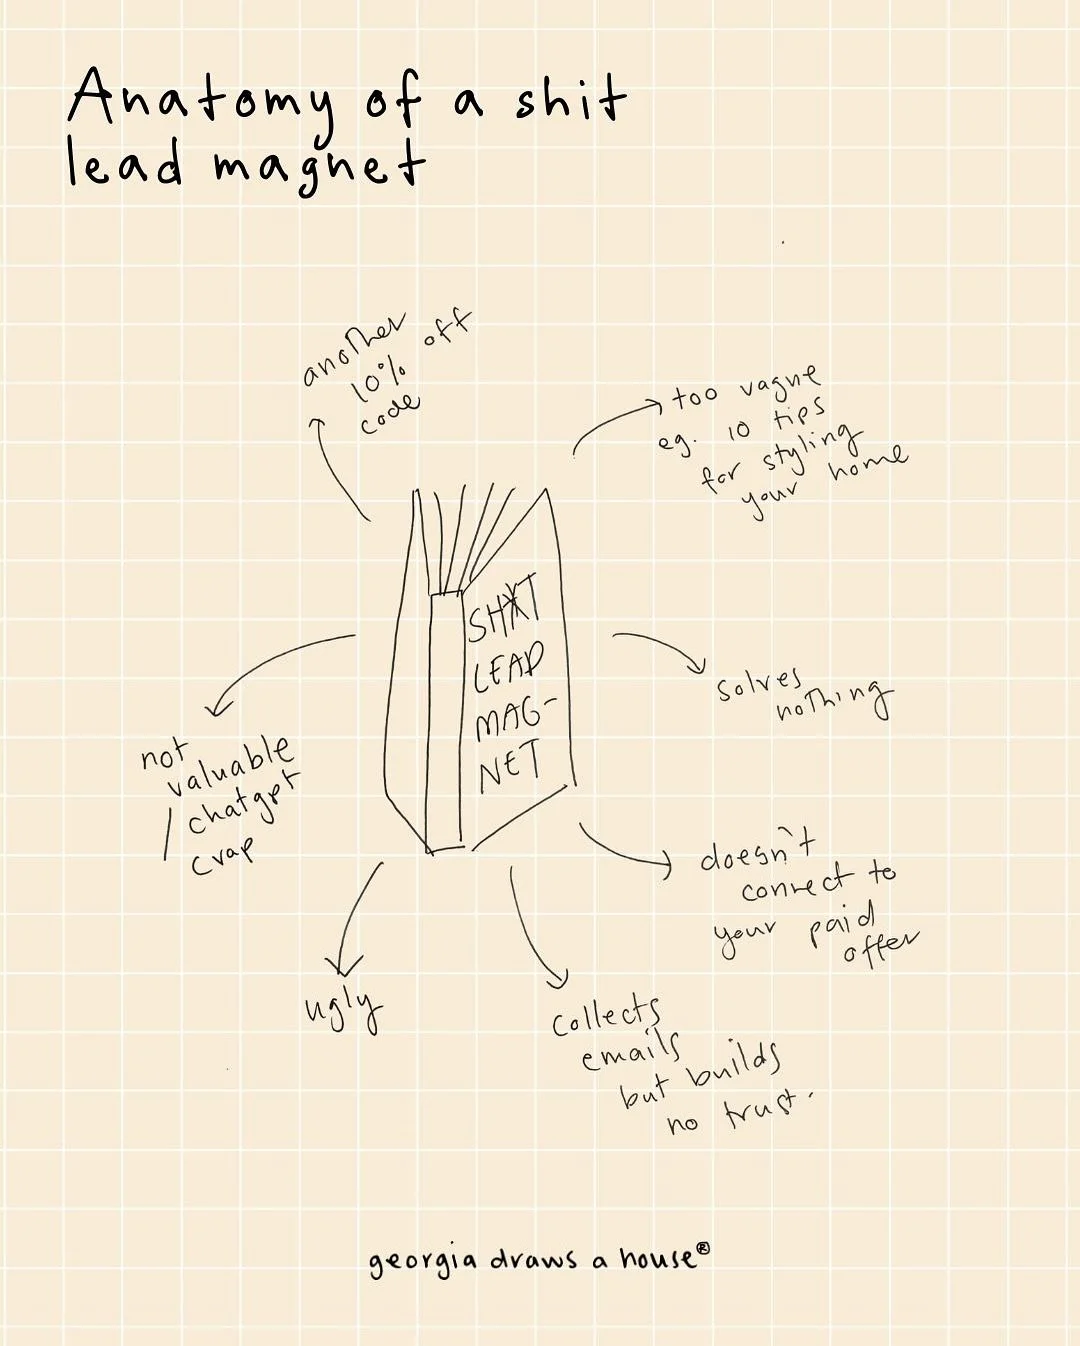 Anatomy of a shit
lead magnet
another
10% off
code
too vague
eg. 10 tips
for styling
your home
SHIT
LEAD
MAG-
NET
solves
nothing
not
valuable
/ chatgpt
crap
doesn't
connect to
your paid
offer
ugly
Collects
emails
but builds
no trust.
georgia draws a house®